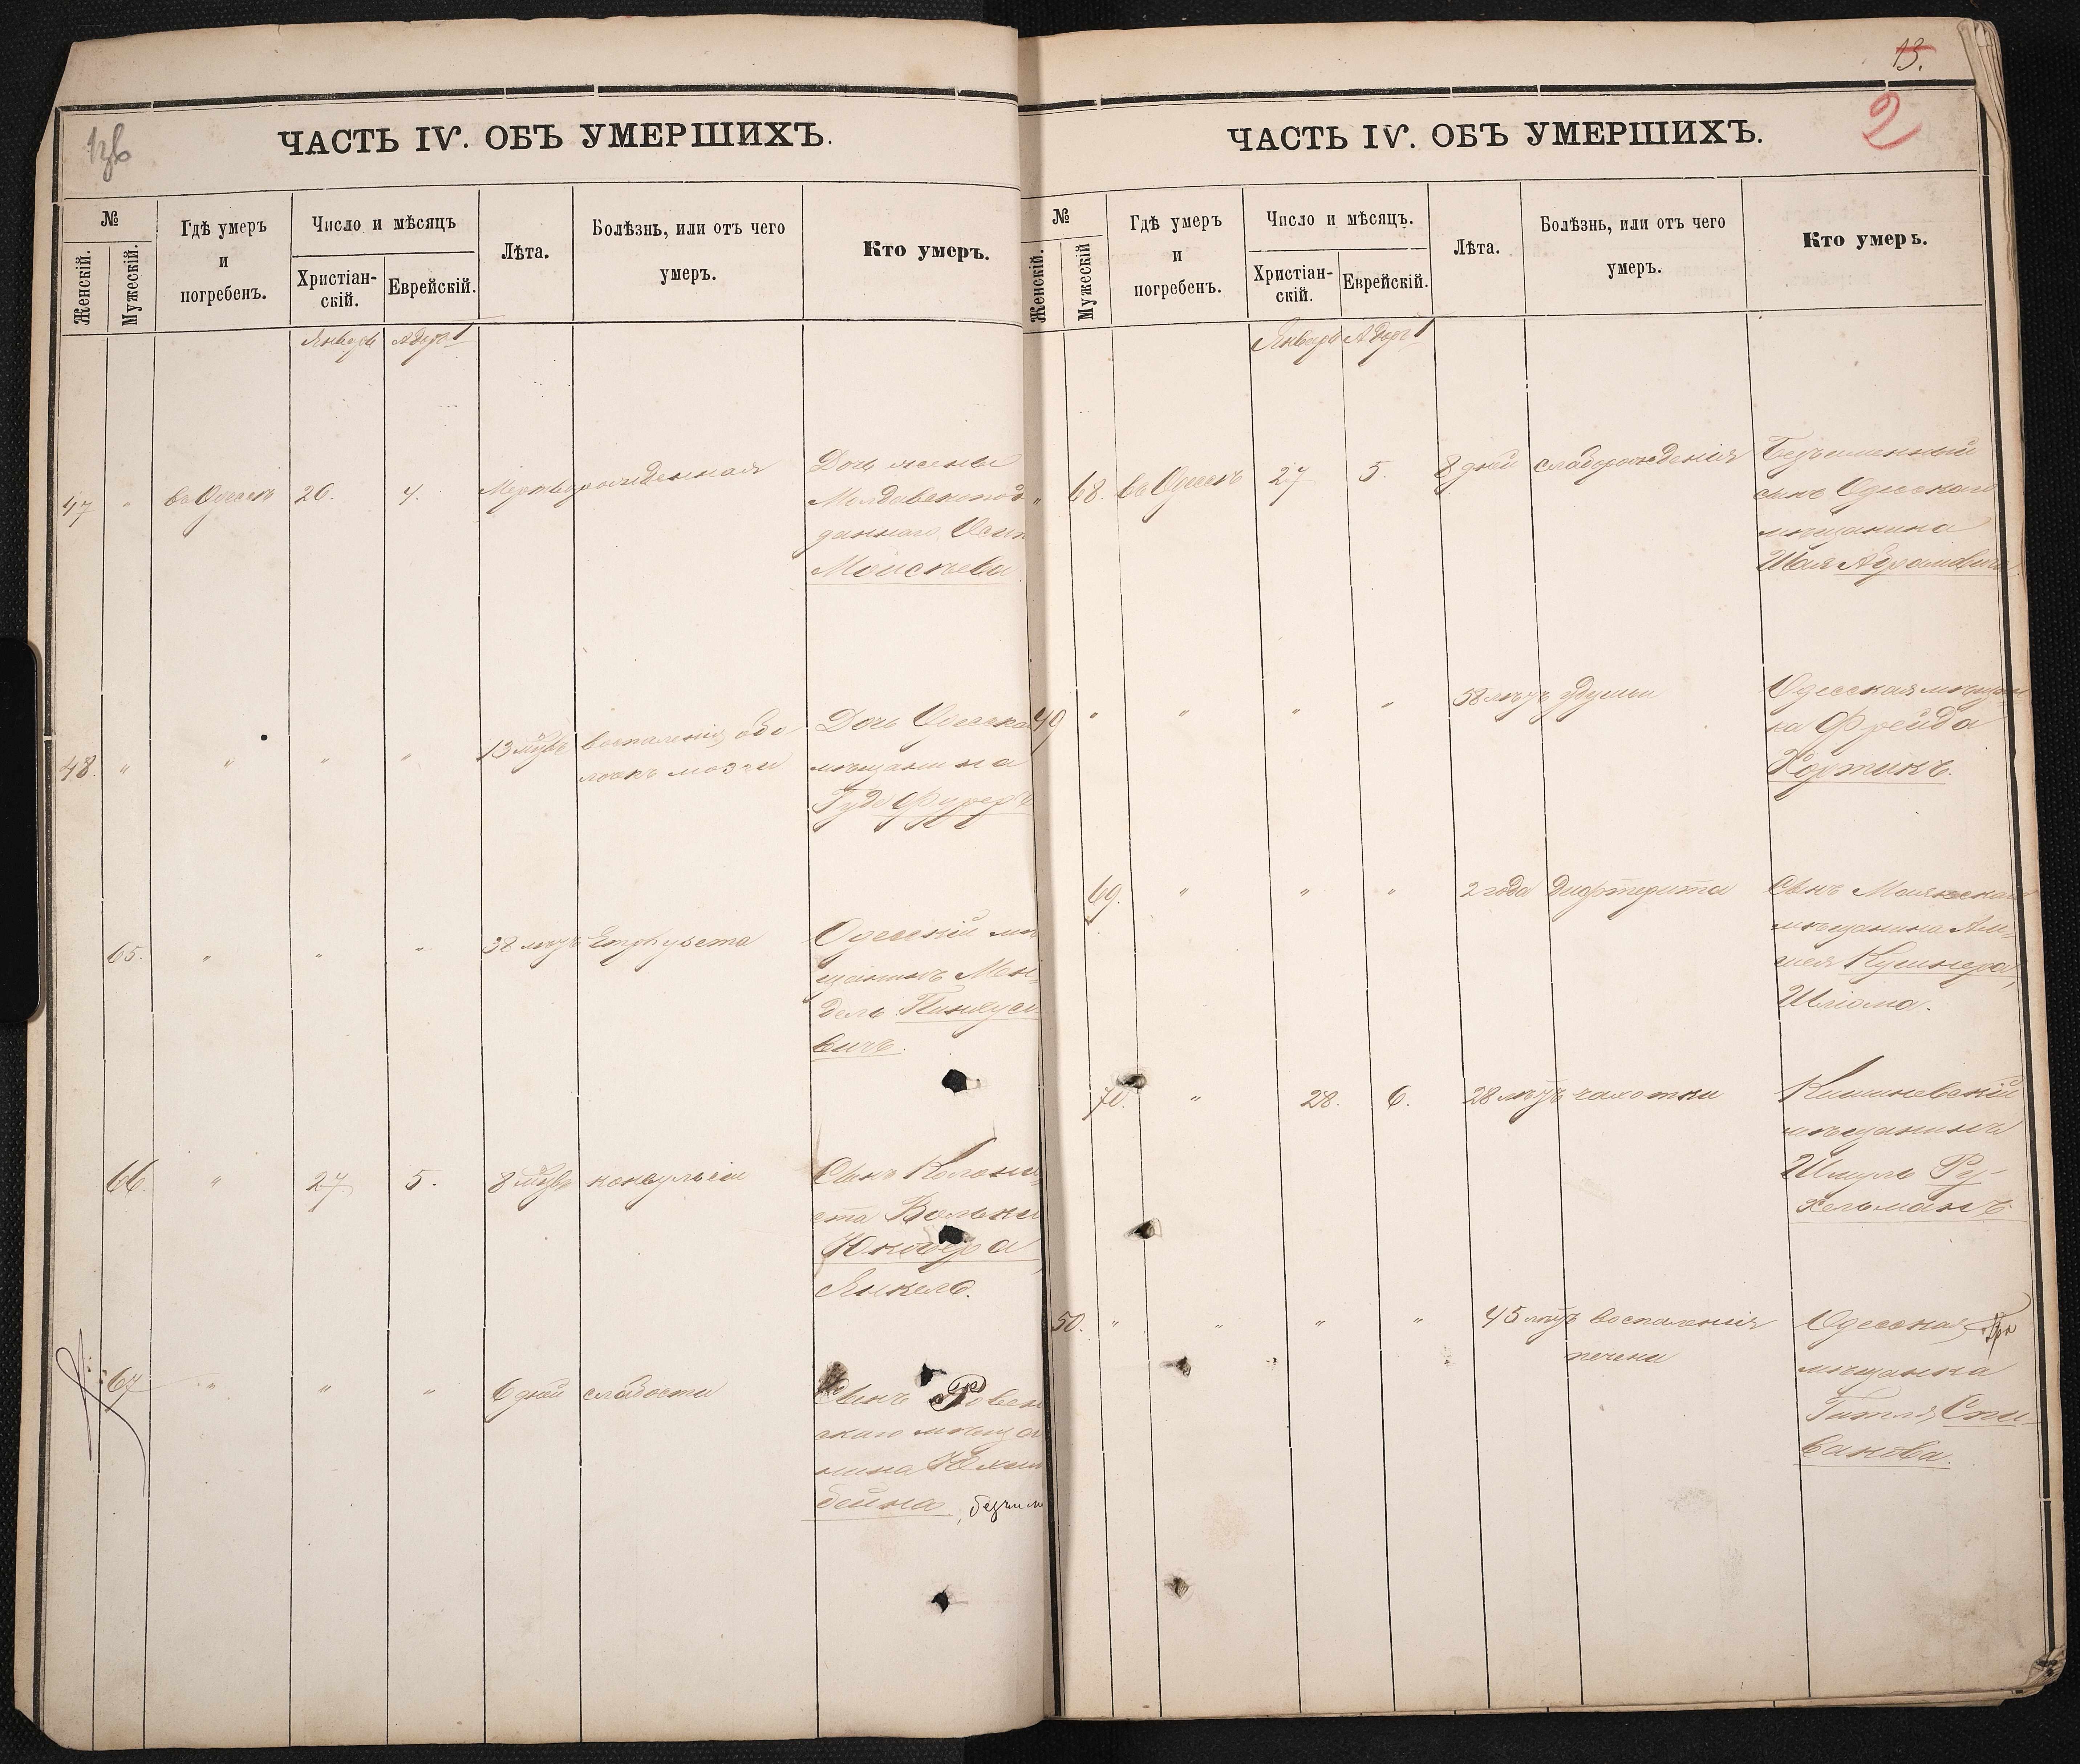 ЧАСТЬ IV. ОБЪ УМЕРШИХЪ.
№
Женскій.
Мужескій.
Гдѣ умеръ
и
погребенъ.
Число и мѣсяцъ
Христіан-
скій.
Еврейскій.
Лѣта.
Болѣзнь, или отъ чего
умеръ.
Кто умеръ.
Январь Адаръ 1
47 " въ Одессѣ 26. 4. Мертворожденная
Дочь жены
Молдавскопод
даннаго Осип
Моисѣева
48. " " " " 13 мѣс. воспаленія обо-
лочкъ мозги
Дочь Одесска
мѣщанина
65. " " " 38 лѣтъ
Одесскій мѣ
щанинъ Мен-
дель Пинхусо
вичъ.
66. " 27. 5. 8 мѣс. конвульсіи
Сынъ Колони-
ста Вольки
Янкель.
67 " " " 6 дней слабости
Сынъ Ровен
скаго мѣща
нина
бейна, безъим
13.
2
ЧАСТЬ IV. ОБЪ УМЕРШИХЪ.
№
Женскій.
Мужескій
Гдѣ умеръ
и
погребенъ.
Число и мѣсяцъ.
Христіан-
скій.
Еврейскій.
Лѣта.
Болѣзнь, или отъ чего
умеръ.
Кто умеръ.
Январь Адаръ 1
" 68. въ Одессѣ 27 5. 8 дней слаборожденія
Безъименный
сынъ Одесскаго
мѣщанина
Шая Абрамовича
49 " " " " 58 лѣтъ удушья
Одесская мѣщан-
ка Фрейда
Хортикъ.
69. " " " 2 года Дифтерита
Сынъ Маякскаго
мѣщанина Ам-
шея Кушнера,
Шліома.
70. " 28. 6. 28 лѣтъ чахотки
Кишиневскій
мѣщанинъ
Шмуль Ре-
хельманъ
50. " " " " 45 лѣтъ воспаленія
печени
Одесская
мѣщанка
Гитля Спи-
вакова.